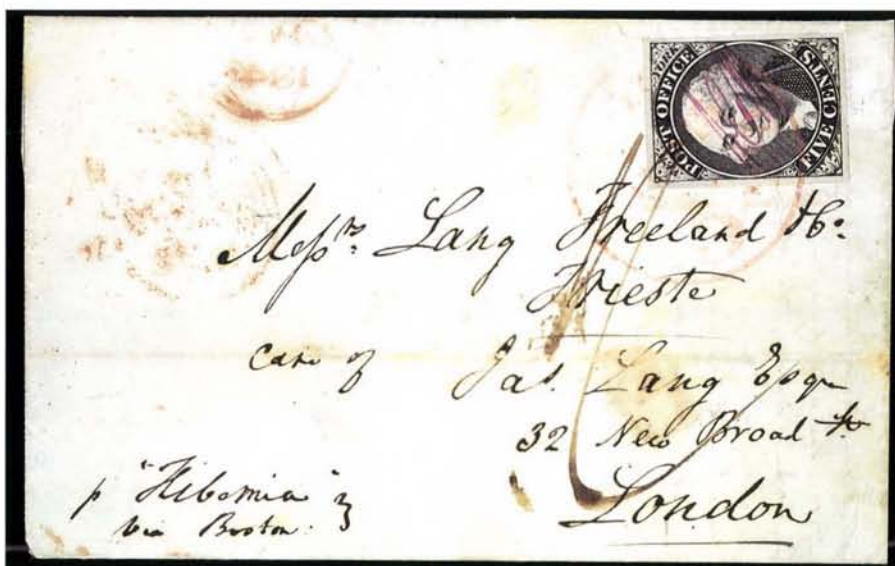 POST OFFICE
FIVE CENTS
Messrs. Lang Freeland & Co.
Trieste
care of Jas. Lang Esqr
32 New Broad St.
London
p "Hibernia"
via Boston